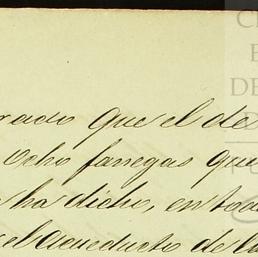 rado que el de
Ocho fanegas que
ha dicho, en to
el Acueducto de la